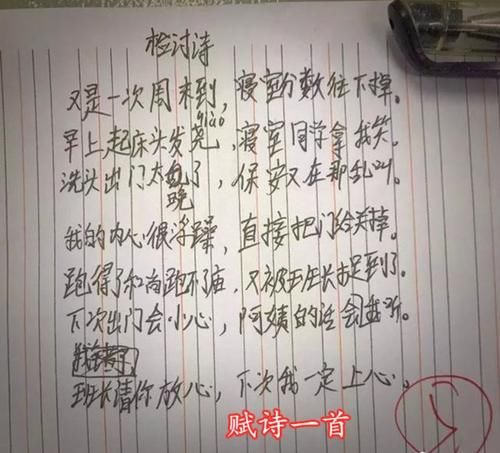 检讨诗
又是一次周末到，寝室分数往下掉。
qiào
早上起床头发尧，寝室同学拿我笑。
洗头出门太了，保安又在那乱叫。
晚
我的内心很浮躁，直接把门给关掉。
跑得了和尚跑不了庙，又被班长捉到了。
下次出门会小心，阿姨的话会听。
班长请你放心，下次我一定上心。
赋诗一首